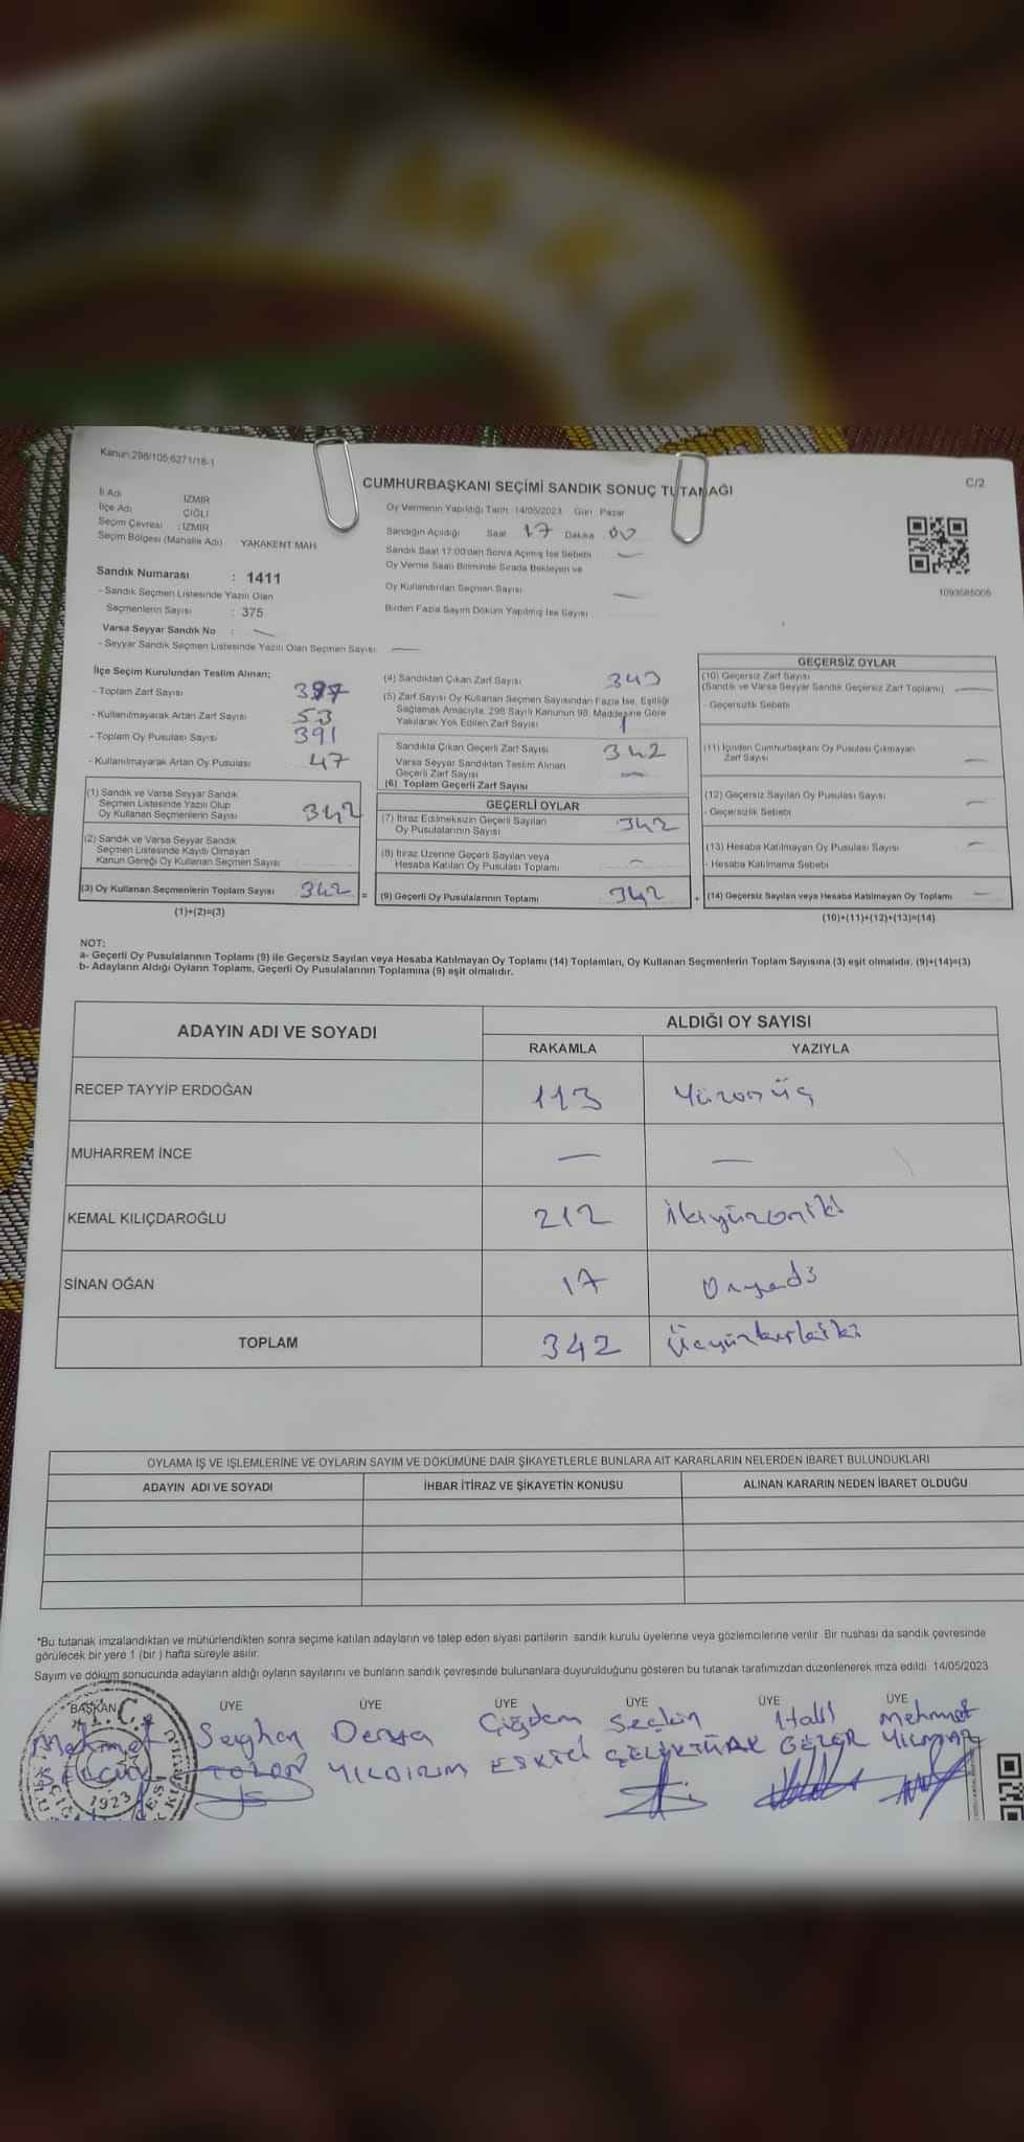 Kanun:298/105;6271/18-1
CUMHURBAŞKANI SEÇİMİ SANDIK SONUÇ TUTANAĞI
C/2
İl Adı İZMİR
İlçe Adı ÇİĞLİ
Seçim Çevresi : İZMİR
Seçim Bölgesi (Mahalle Adı) YAKAKENT MAH
Oy Vermenin Yapıldığı Tarih 14/05/2023 Gün Pazar
Sandığın Açıldığı Saat 17 Dakika 00
Sandık Saat 17:00'den Sonra Açılmış İse Sebebi —
Oy Verme Saati Bitiminde Sırada Bekleyen ve
Oy Kullandırılan Seçmen Sayısı —
Birden Fazla Sayım Döküm Yapılmış İse Sayısı
Sandık Numarası : 1411
- Sandık Seçmen Listesinde Yazılı Olan
Seçmenlerin Sayısı : 375
Varsa Seyyar Sandık No : —
- Seyyar Sandık Seçmen Listesinde Yazılı Olan Seçmen Sayısı —
İlçe Seçim Kurulundan Teslim Alınan;
- Toplam Zarf Sayısı
- Kullanılmayarak Artan Zarf Sayısı 53
- Toplam Oy Pusulası Sayısı 391
- Kullanılmayarak Artan Oy Pusulası 47
(1) Sandık ve Varsa Seyyar Sandık
Seçmen Listesinde Yazılı Olup
Oy Kullanan Seçmenlerin Sayısı 342
(2) Sandık ve Varsa Seyyar Sandık
Seçmen Listesinde Kayıtlı Olmayan
Kanun Gereği Oy Kullanan Seçmen Sayısı
(3) Oy Kullanan Seçmenlerin Toplam Sayısı 342 =
(1)+(2)=(3)
(4) Sandıktan Çıkan Zarf Sayısı 343
(5) Zarf Sayısı Oy Kullanan Seçmen Sayısından Fazla İse, Eşitliği
Sağlamak Amacıyla, 298 Sayılı Kanunun 98. Maddesine Göre
Yakılarak Yok Edilen Zarf Sayısı 1
Sandıkta Çıkan Geçerli Zarf Sayısı 342
Varsa Seyyar Sandıktan Teslim Alınan
Geçerli Zarf Sayısı —
(6) Toplam Geçerli Zarf Sayısı
GEÇERLİ OYLAR
(7) İtiraz Edilmeksizin Geçerli Sayılan
Oy Pusulalarının Sayısı 342
(8) İtiraz Üzerine Geçerli Sayılan veya
Hesaba Katılan Oy Pusulası Toplamı —
(9) Geçerli Oy Pusulalarının Toplamı 342 +
GEÇERSİZ OYLAR
(10) Geçersiz Zarf Sayısı
(Sandık ve Varsa Seyyar Sandık Geçersiz Zarf Toplamı) —
- Geçersizlik Sebebi
(11) İçinden Cumhurbaşkanı Oy Pusulası Çıkmayan
Zarf Sayısı —
(12) Geçersiz Sayılan Oy Pusulası Sayısı —
- Geçersizlik Sebebi
(13) Hesaba Katılmayan Oy Pusulası Sayısı —
- Hesaba Katılmama Sebebi
(14) Geçersiz Sayılan veya Hesaba Katılmayan Oy Toplamı —
(10)+(11)+(12)+(13)=(14)
NOT:
a- Geçerli Oy Pusulalarının Toplamı (9) ile Geçersiz Sayılan veya Hesaba Katılmayan Oy Toplamı (14) Toplamları, Oy Kullanan Seçmenlerin Toplam Sayısına (3) eşit olmalıdır. (9)+(14)=(3)
b- Adayların Aldığı Oyların Toplamı, Geçerli Oy Pusulalarının Toplamına (9) eşit olmalıdır.
ADAYIN ADI VE SOYADI ALDIĞI OY SAYISI
RAKAMLA YAZIYLA
RECEP TAYYİP ERDOĞAN 113 Yüzonüç
MUHARREM İNCE — —
KEMAL KILIÇDAROĞLU 212 İkiyüzoniki
SİNAN OĞAN 17 Onyedi
TOPLAM 342 Üçyüzkırkiki
OYLAMA İŞ VE İŞLEMLERİNE VE OYLARIN SAYIM VE DÖKÜMÜNE DAİR ŞİKAYETLERLE BUNLARA AİT KARARLARIN NELERDEN İBARET BULUNDUKLARI
ADAYIN ADI VE SOYADI İHBAR İTİRAZ VE ŞİKAYETİN KONUSU ALINAN KARARIN NEDEN İBARET OLDUĞU
*Bu tutanak imzalandıktan ve mühürlendikten sonra seçime katılan adayların ve talep eden siyasi partilerin sandık kurulu üyelerine veya gözlemcilerine verilir. Bir nüshası da sandık çevresinde
görülecek bir yere 1 (bir ) hafta süreyle asılır.
Sayım ve döküm sonucunda adayların aldığı oyların sayılarını ve bunların sandık çevresinde bulunanlara duyurulduğunu gösteren bu tutanak tarafımızdan düzenlenerek imza edildi. 14/05/2023
BAŞKAN ÜYE ÜYE ÜYE ÜYE ÜYE ÜYE
Mehmet Seyhan Derya Çiğdem Seçkin Halil Mehmet
SELÇUK YILDIRIM ESKİCİ ÇELİKTÜRK GEZER YILMAZ
T.C.
1923